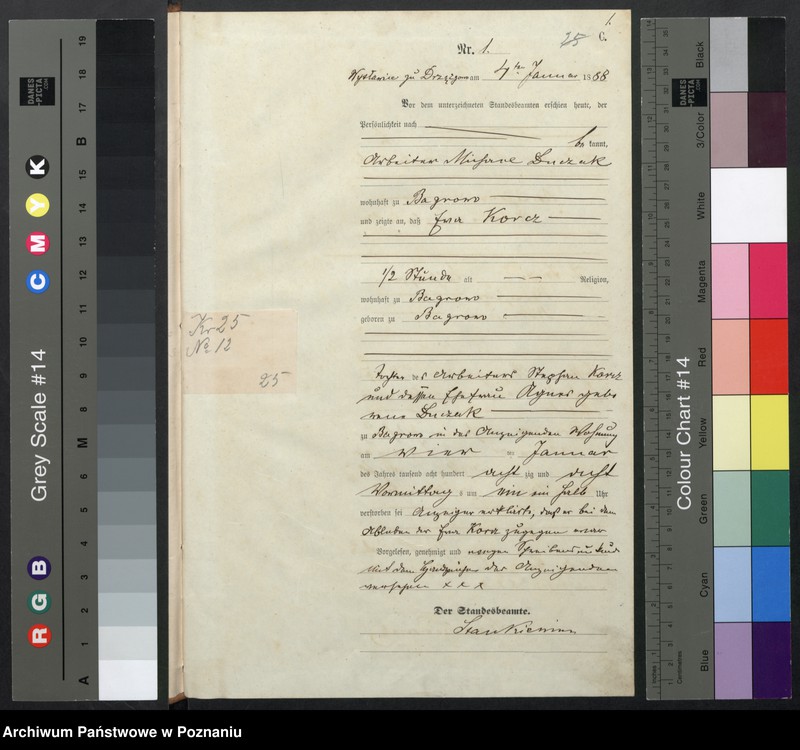 1.
25 C.
Nr. 1.
am 4ten Januar 1888
Vor dem unterzeichneten Standesbeamten erschien heute, der
Persönlichkeit nach
bekannt,
Arbeiter Michael Buczak
wohnhaft zu Bagrowo
und zeigte an, daß Eva Korcz
1/2 Stunde alt Religion,
wohnhaft zu Bagrowo
geboren zu Bagrowo
Tochter des Arbeiters Stephan Korcz
und dessen Ehefrau Agnes gebo
rene Buczak
zu Bagrowo in des Anzeigenden Wohnung
am vier Januar
des Jahres tausend acht hundert acht zig und acht
Vormittag s um ein ein halb Uhr
verstorben sei Anzeiger erklärte, daß er bei dem
Ableben der Eva Korcz zugegen war
Vorgelesen, genehmigt und wegen Schreibensunkund
mit dem Handzeichen des Anzeigenden
versehen x x x
Der Standesbeamte.
Stankiewicz
Kr 25
No 12
25
DANES
-PICTA
.COM
Grey Scale #14
R G B C M Y K
A 1 2 3 4 5 6 M 8 9 10 11 12 13 14 15 B 17 18 19
DANES
-PICTA
.COM
Colour Chart #14
Black
3/Color
White
Magenta
Red
Yellow
Green
Cyan
Blue
Inches
Centimetres
Archiwum Państwowe w Poznaniu